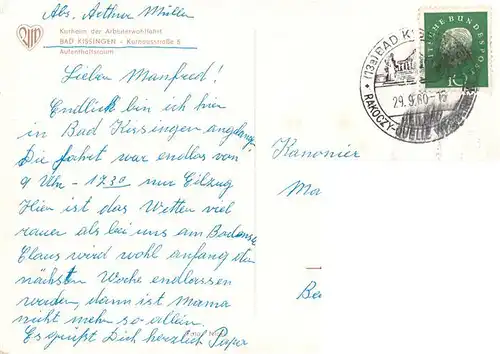 Abs. Arthur Müller
Kurheim der Arbeiterwohlfahrt
BAD KISSINGEN - Kurhausstraße 5
Aufenthaltsraum
Lieber Manfred!
Endlich bin ich hier
in Bad Kissingen angelangt
Die Fahrt war endlos von
9 Uhr - 17.30 nur Eilzug
Hier ist das Wetter viel
rauer als bei uns am Bodensee
Claus wird wohl anfang der
nächsten Woche endlassen
werden, dann ist Mama
nicht mehr so allein.
Es grüßt Dich herzlich Papa
(13a) BAD KI
29.9.60-1
HEILBAD
RAKOCZY-QUELLE
DEUTSCHE BUNDESPOST
10
Kanonier
Ma
Ba